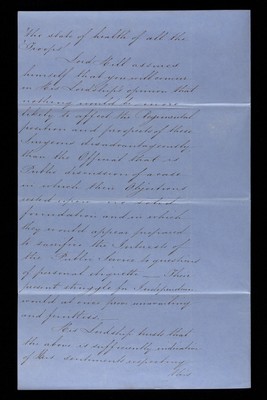 The state of health of all the
Troops
Lord Hill assures
himself that you will concur
in His Lordship's opinion that
nothing would be more
likely to affect the Regimental
position and prospects of these
Surgeons disadvantageously
than the Official that is
Public discussion of a case
in which their Objections
rested upon no solid
foundation and in which
they would appear prepared
to sacrifice the Interests of
the Public Service to questions
of personal etiquette — Their
present struggle for Independence
would at once prove unavailing
and fruitless —
His Lordship trusts that
the above is sufficiently indicative
of His sentiments respecting